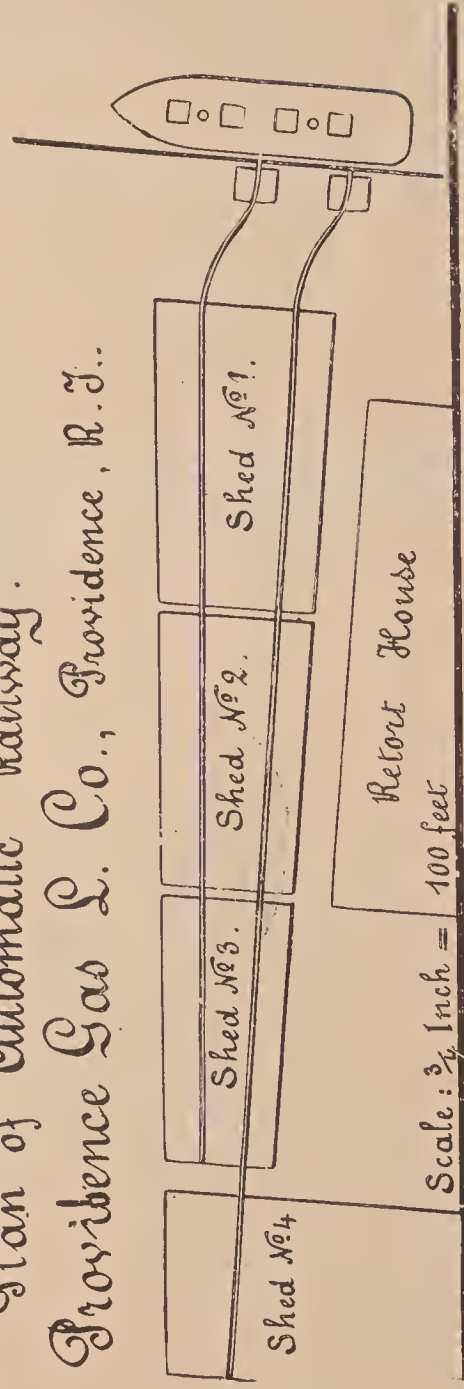 Plan of Automatic Railway.
Providence Gas L. Co., Providence, R.I..
Shed Nº4
Shed Nº3.
Shed Nº2.
Shed Nº1.
Retort House
Scale: 3/4 Inch = 100 feet